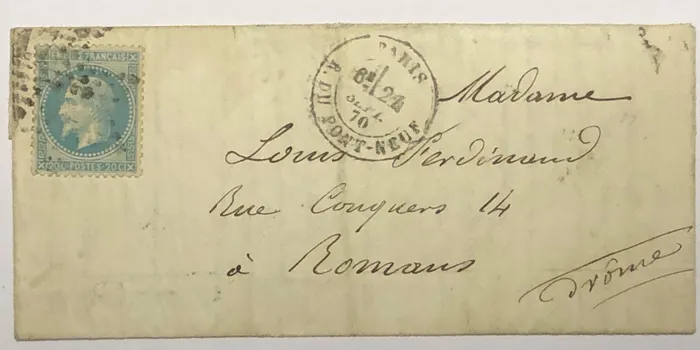 FRANÇAIS
20C POSTES 20C
PARIS
6E 24
SEPT.
70
R. DU PONT-NEUF
Madame
Louis Ferdinand
Rue Conquers 14
à Romans
Drôme